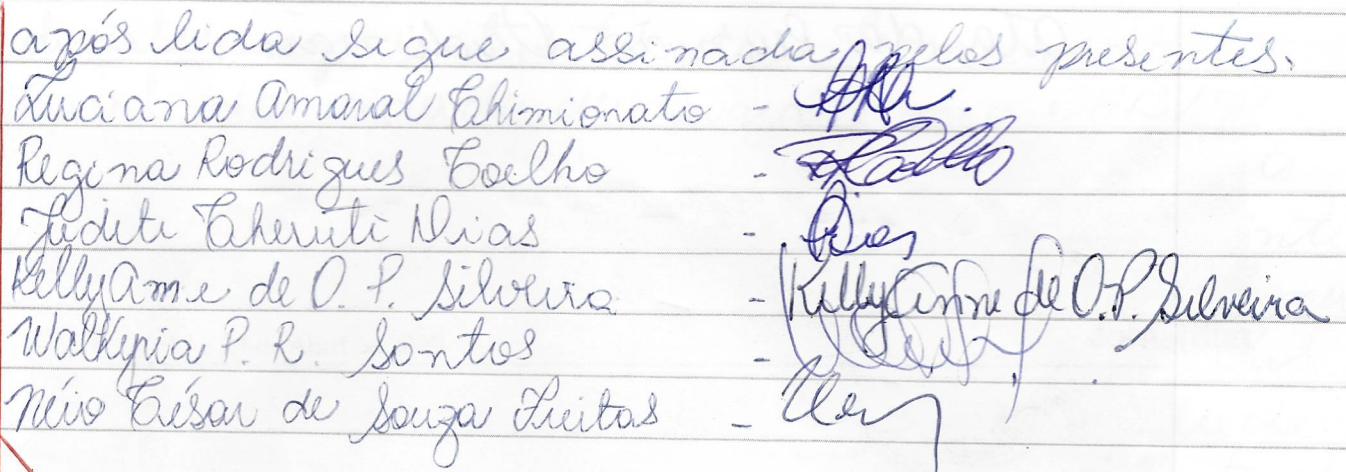 após lida segue assinada pelos presentes.
Luciana Amaral Chimionato -
Regina Rodrigues Coelho - RCoelho
Judite Cheruti Dias - Dias
Kellyanne de O. P. Silveira - Kellyanne de O. P. Silveira
Walkyria P. R. Santos -
Nério César de Souza Freitas -